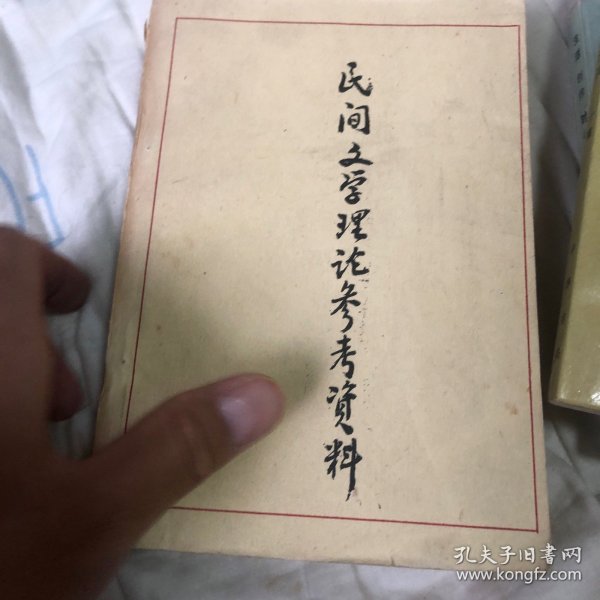 民间文学理论参考资料
孔夫子旧书网
www.kongfz.com